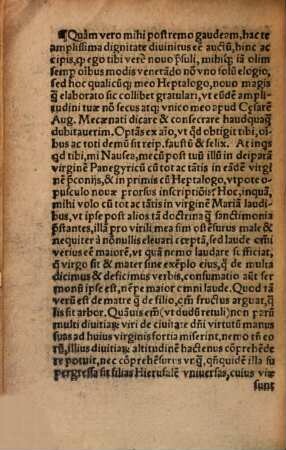 ¶Quàm vero mihi postremo gaudeam, hac te
amplissima dignitate diuinitus eē auctū, hinc ac
cipis, ꝙ ego tibi verē nouo p̄suli, mihiꝗ iā olim
semꝑ oībus modis venerādo nō vno solū elogio,
sed hoc qualicūꝗ meo Heptalogo, nouo magis
ꝗ elaborato sic collibet gratulari, vt eundē ampli
tudini tuæ nō secus atꝗ vnico meo apud Cęsarē
Aug. Mecœnati dicare & consecrare haudquaꝗ
dubitauerim. Optās ex aīo, vt qđ obtigit tibi, oī
bus ac toti demū sit reip. faustū & felix. At inqs
qd tibi, mi Nausea, mecū post tuū illū in deiparā
virginē Panegyricū cū tot ac tātis in eādē virgi
nē Pęonijs, & in primis cū Heptalogo, vtpote o
pusculo nouæ prorsus inscriptiōis? Hoc, inquā,
mihi volo cū tot ac tātis in virginē Mariā laudi
bus, vt ipse post alios tā doctrina ꝗ sanctimonia
p̄stantes, illā pro virili mea sim ostēsurus male &
nequiter à nōnullis eleuari cœptā, sed laude omni
verius eē maiorē, vt quā nemo laudare sufficiat,
ꝗ̄ virgo sit & mater sine exēplo eius, ꝗ̄ de multa
dicimus & deficimus verbis, consumatio aūt ser
monū ipse est, nēpe maior omni laude. Quod tā
verū est de matre ꝗ de filio, cm̄ fructus arguat, ꝗ
lis sit arbor. Qualis em̄ (vt dudū retuli) non parū
multi diuitiaꝝ viri de ciuitate dn̄i virtutū manus
suas ad huius virginis fortia miserint, nemo tn̄ eo
rū, illius diuitiaꝝ altitudinē hactenus cōprehēde
re potuit, nec cōprehēsurus vnꝗ̄, qn̄quidē illa su
pergressa sit filias Hierusalē vniuersas, cuius viæ
sunt